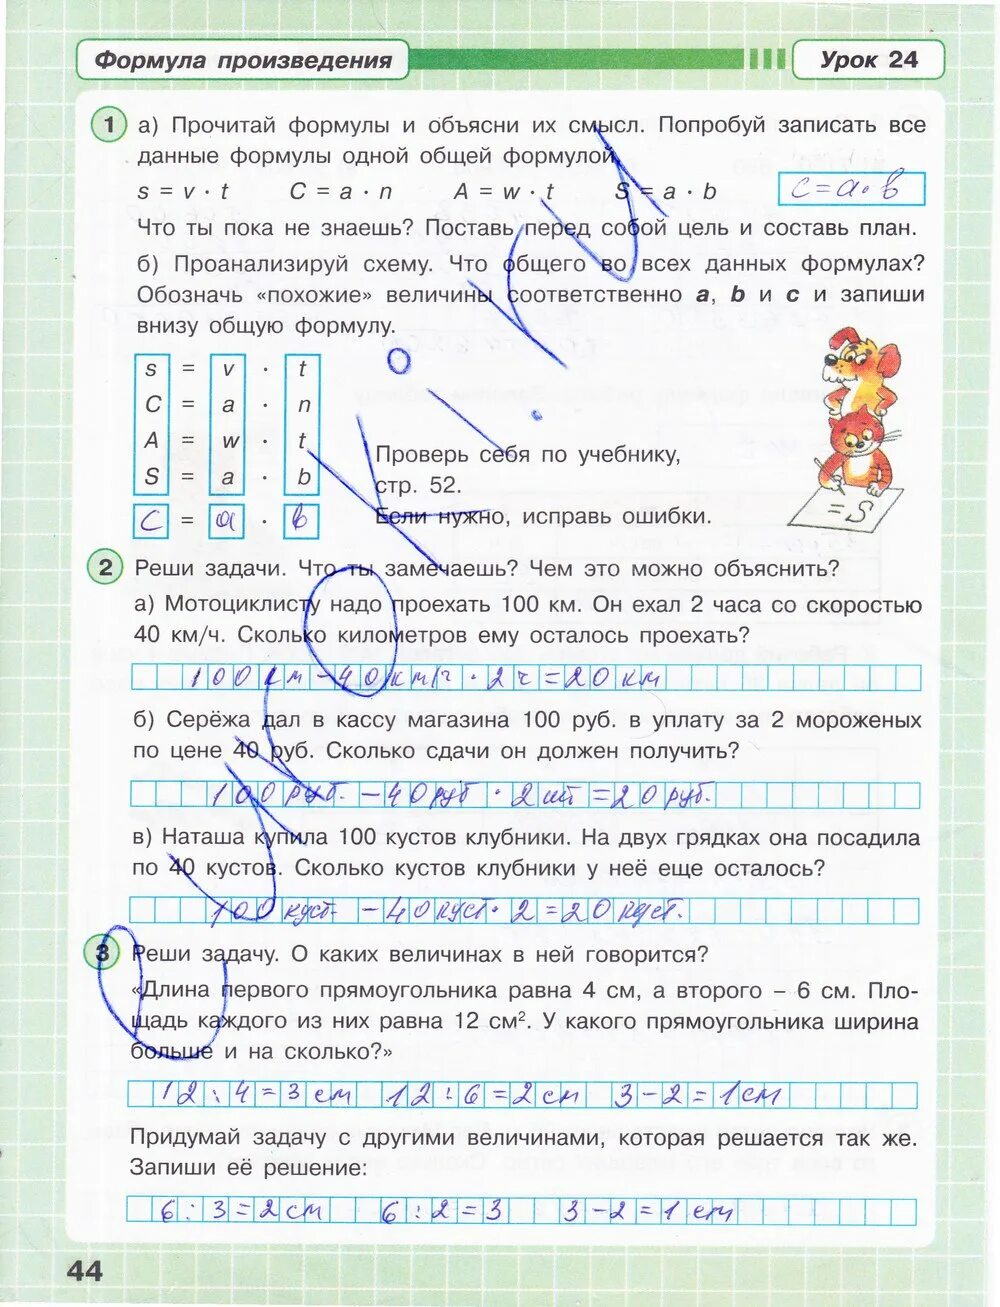 Формула произведения
Урок 24
1 а) Прочитай формулы и объясни их смысл. Попробуй записать все
данные формулы одной общей формулой.
s = v · t C = a · n A = w · t S = a · b c = a · b
Что ты пока не знаешь? Поставь перед собой цель и составь план.
б) Проанализируй схему. Что общего во всех данных формулах?
Обозначь «похожие» величины соответственно a, b и c и запиши
внизу общую формулу.
s = v · t
C = a · n
A = w · t
S = a · b
c = a · b
Проверь себя по учебнику,
стр. 52.
Если нужно, исправь ошибки.
= S
2 Реши задачи. Что ты замечаешь? Чем это можно объяснить?
а) Мотоциклисту надо проехать 100 км. Он ехал 2 часа со скоростью
40 км/ч. Сколько километров ему осталось проехать?
100 км – 40 км/ч · 2 ч = 20 км
б) Серёжа дал в кассу магазина 100 руб. в уплату за 2 мороженых
по цене 40 руб. Сколько сдачи он должен получить?
100 руб. – 40 руб · 2 шт = 20 руб.
в) Наташа купила 100 кустов клубники. На двух грядках она посадила
по 40 кустов. Сколько кустов клубники у неё еще осталось?
100 куст. – 40 куст. · 2 = 20 куст.
3 Реши задачу. О каких величинах в ней говорится?
«Длина первого прямоугольника равна 4 см, а второго – 6 см. Пло-
щадь каждого из них равна 12 см². У какого прямоугольника ширина
больше и на сколько?»
12 : 4 = 3 см 12 : 6 = 2 см 3 – 2 = 1 см
Придумай задачу с другими величинами, которая решается так же.
Запиши её решение:
6 : 3 = 2 см 6 : 2 = 3 3 – 2 = 1 см
44